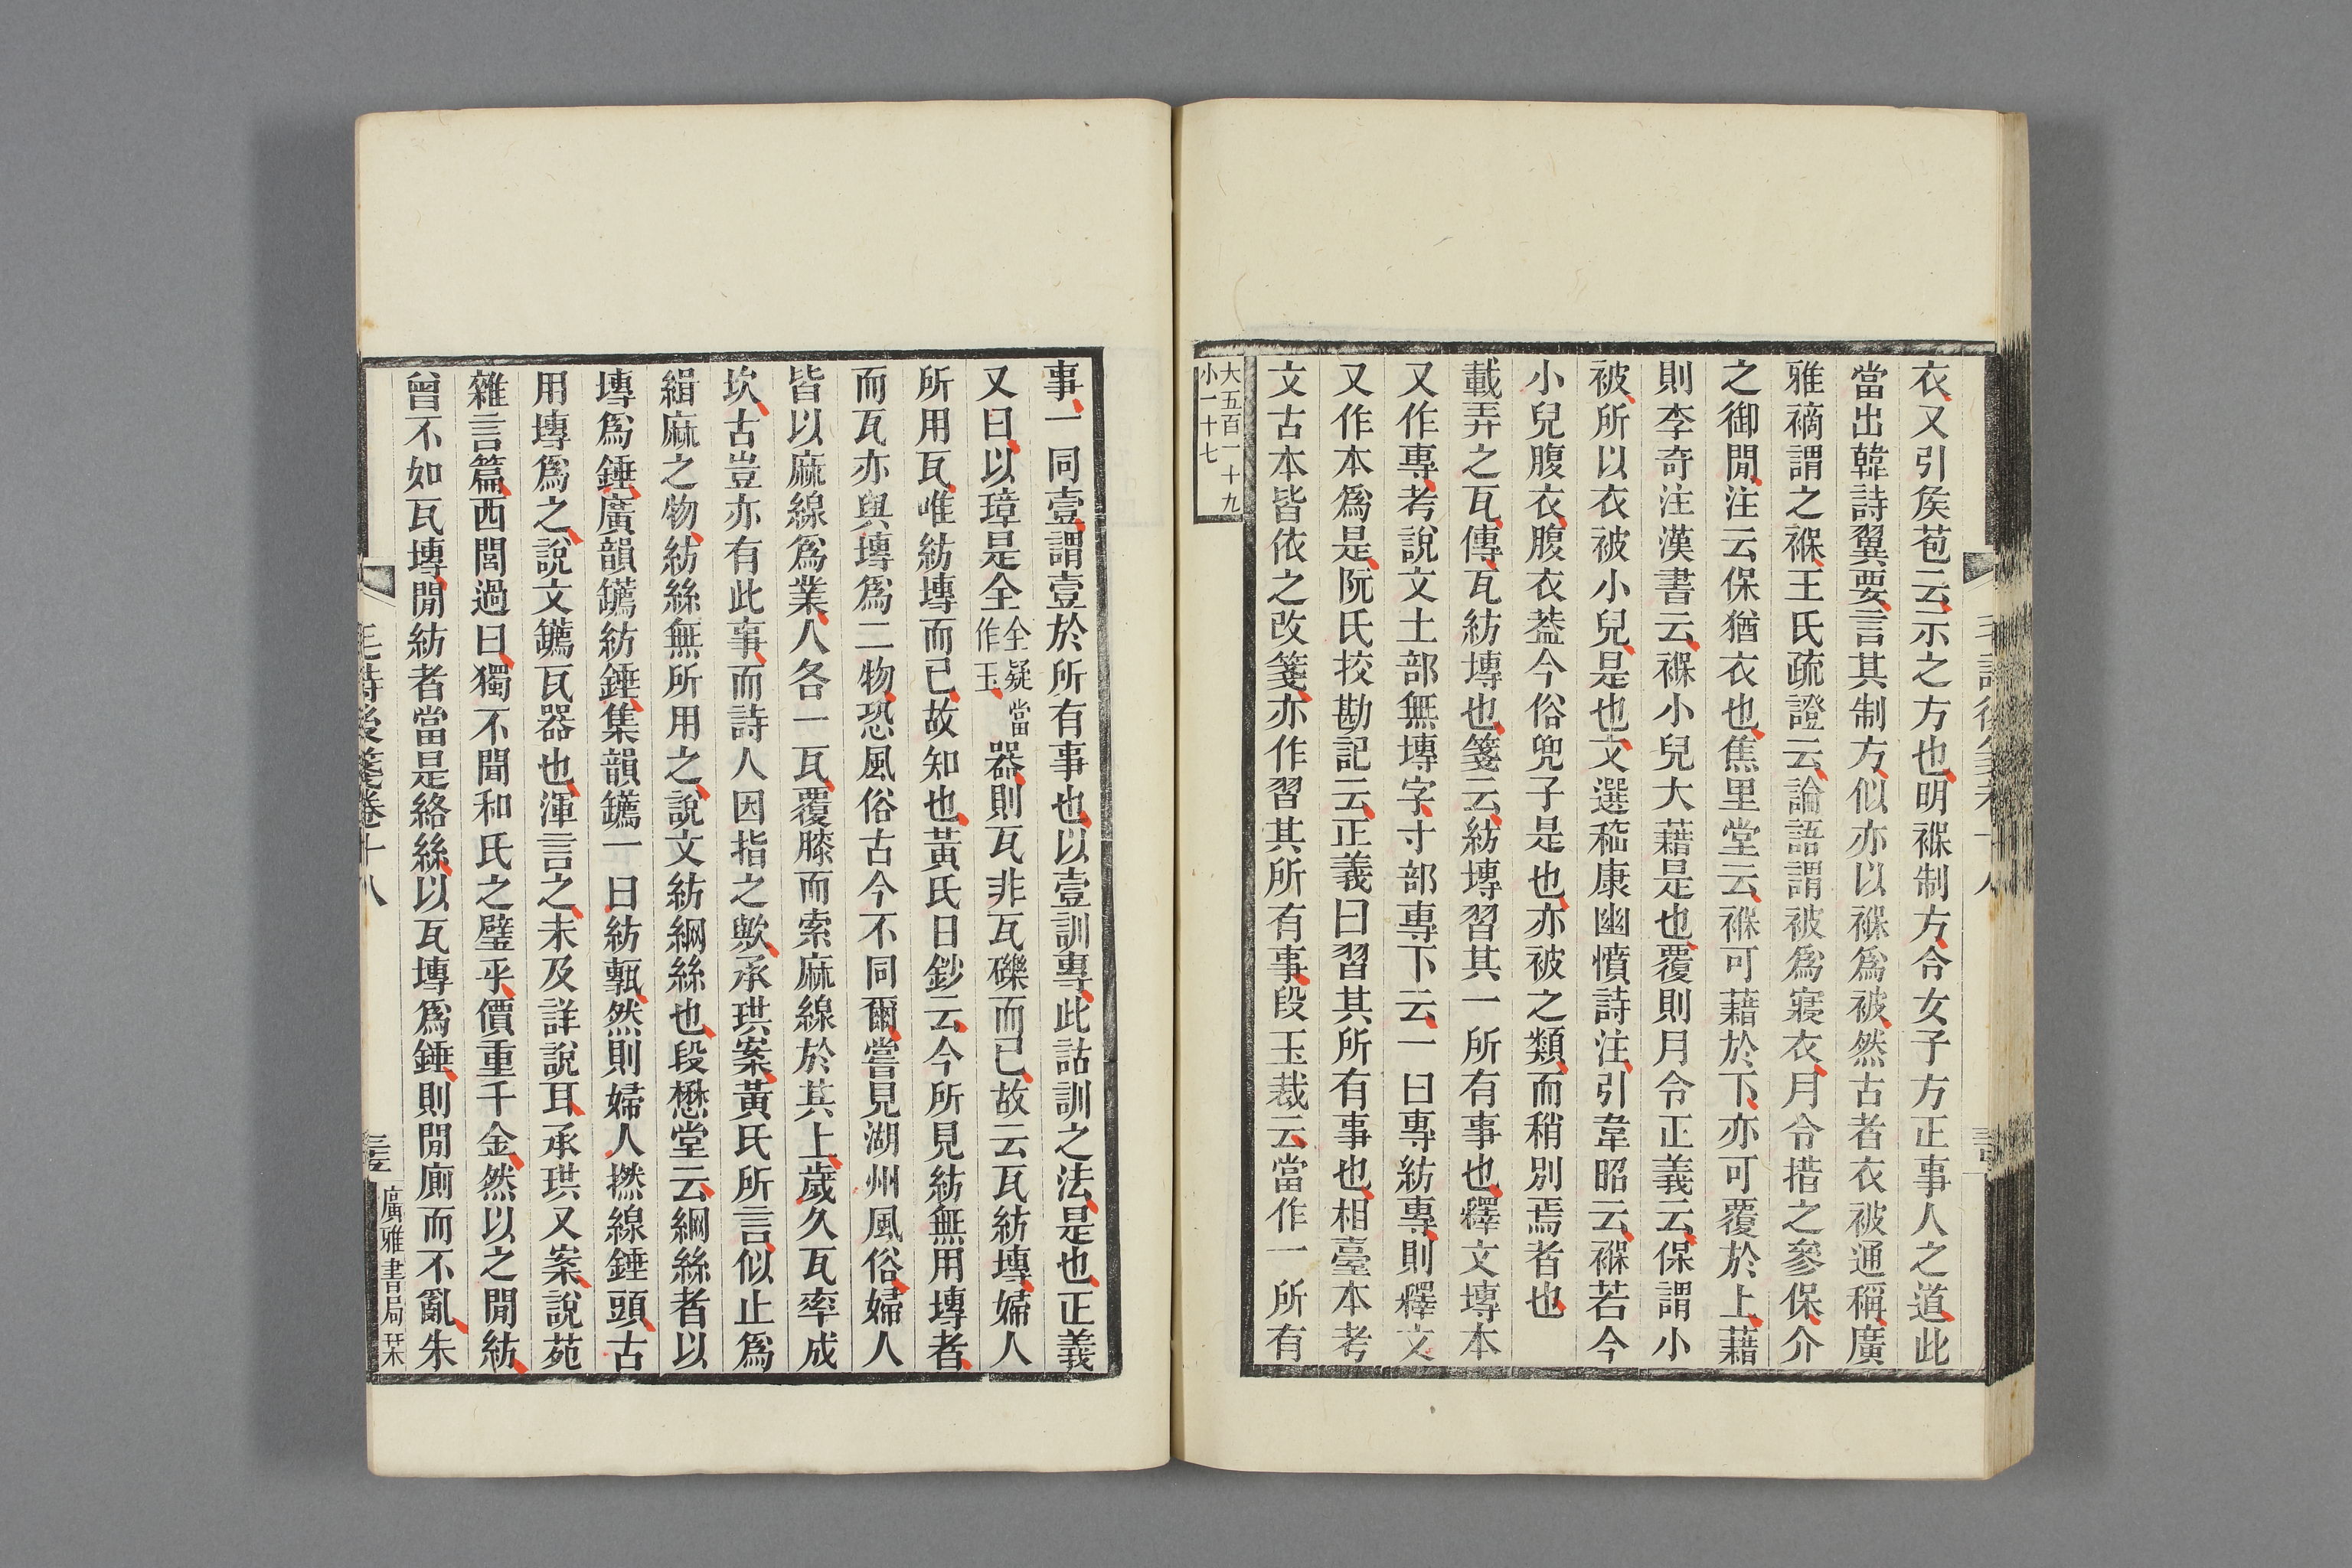 衣又引侯苞云示之方也明褓制方令女子方正事人之道此
當出韓詩翼要言其制方似亦以褓爲被然古者衣被通稱廣
雅褯謂之褓王氏疏證云論語謂被爲寢衣月令措之參保介
之御閒注云保猶衣也焦里堂云褓可藉於下亦可覆於上藉
則李奇注漢書云褓小兒大藉是也覆則月令正義云保謂小
被所以衣被小兒是也文選嵇康幽憤詩注引韋昭云褓若今
小兒腹衣腹衣葢今俗兜子是也亦被之類而稍別焉者也
載弄之瓦傳瓦紡塼也箋云紡塼習其一所有事也釋文塼本
又作專考說文土部無塼字寸部專下云一曰專紡專則釋文
又作本爲是阮氏挍勘記云正義曰習其所有事也相臺本考
文古本皆依之改箋亦作習其所有事段玉裁云當作一所有
大五百一十九
小一十七
事一同壹謂壹於所有事也以壹訓專此詁訓之法是也正義
又曰以璋是全全疑當作玉器則瓦非瓦礫而已故云瓦紡塼婦人
所用瓦唯紡塼而已故知也黃氏日鈔云今所見紡無用塼者
而瓦亦與塼爲二物恐風俗古今不同爾嘗見湖州風俗婦人
皆以麻線爲業人各一瓦覆膝而索麻線於其上歲久瓦率成
坎古豈亦有此事而詩人因指之歟承珙案黃氏所言似止爲
緝麻之物紡絲無所用之說文紡網絲也段懋堂云網絲者以
塼爲錘廣韻鑂紡錘集韻鑂一曰紡甎然則婦人撚線錘頭古
用塼爲之說文鑂瓦器也渾言之未及詳說耳承珙又案說苑
雜言篇西閭過曰獨不聞和氏之璧乎價重千金然以之閒紡
曾不如瓦塼閒紡者當是絡絲以瓦塼爲錘則閒廁而不亂朱
毛詩後箋卷十八
廣雅書局栞